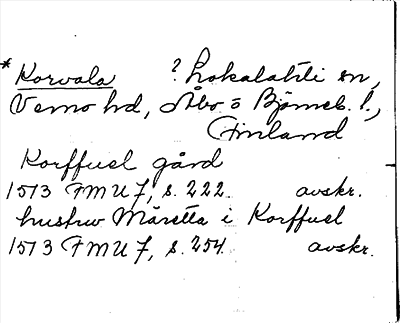 * Korvala ? Lokalahti sn,
Vemo hd, Åbo o Björneb. l.,
Finland
Korffuel gård
1573 FMU 7, s. 222. avskr.
hustrw Märetta i Korffuel
1573 FMU 7, s. 254. avskr.